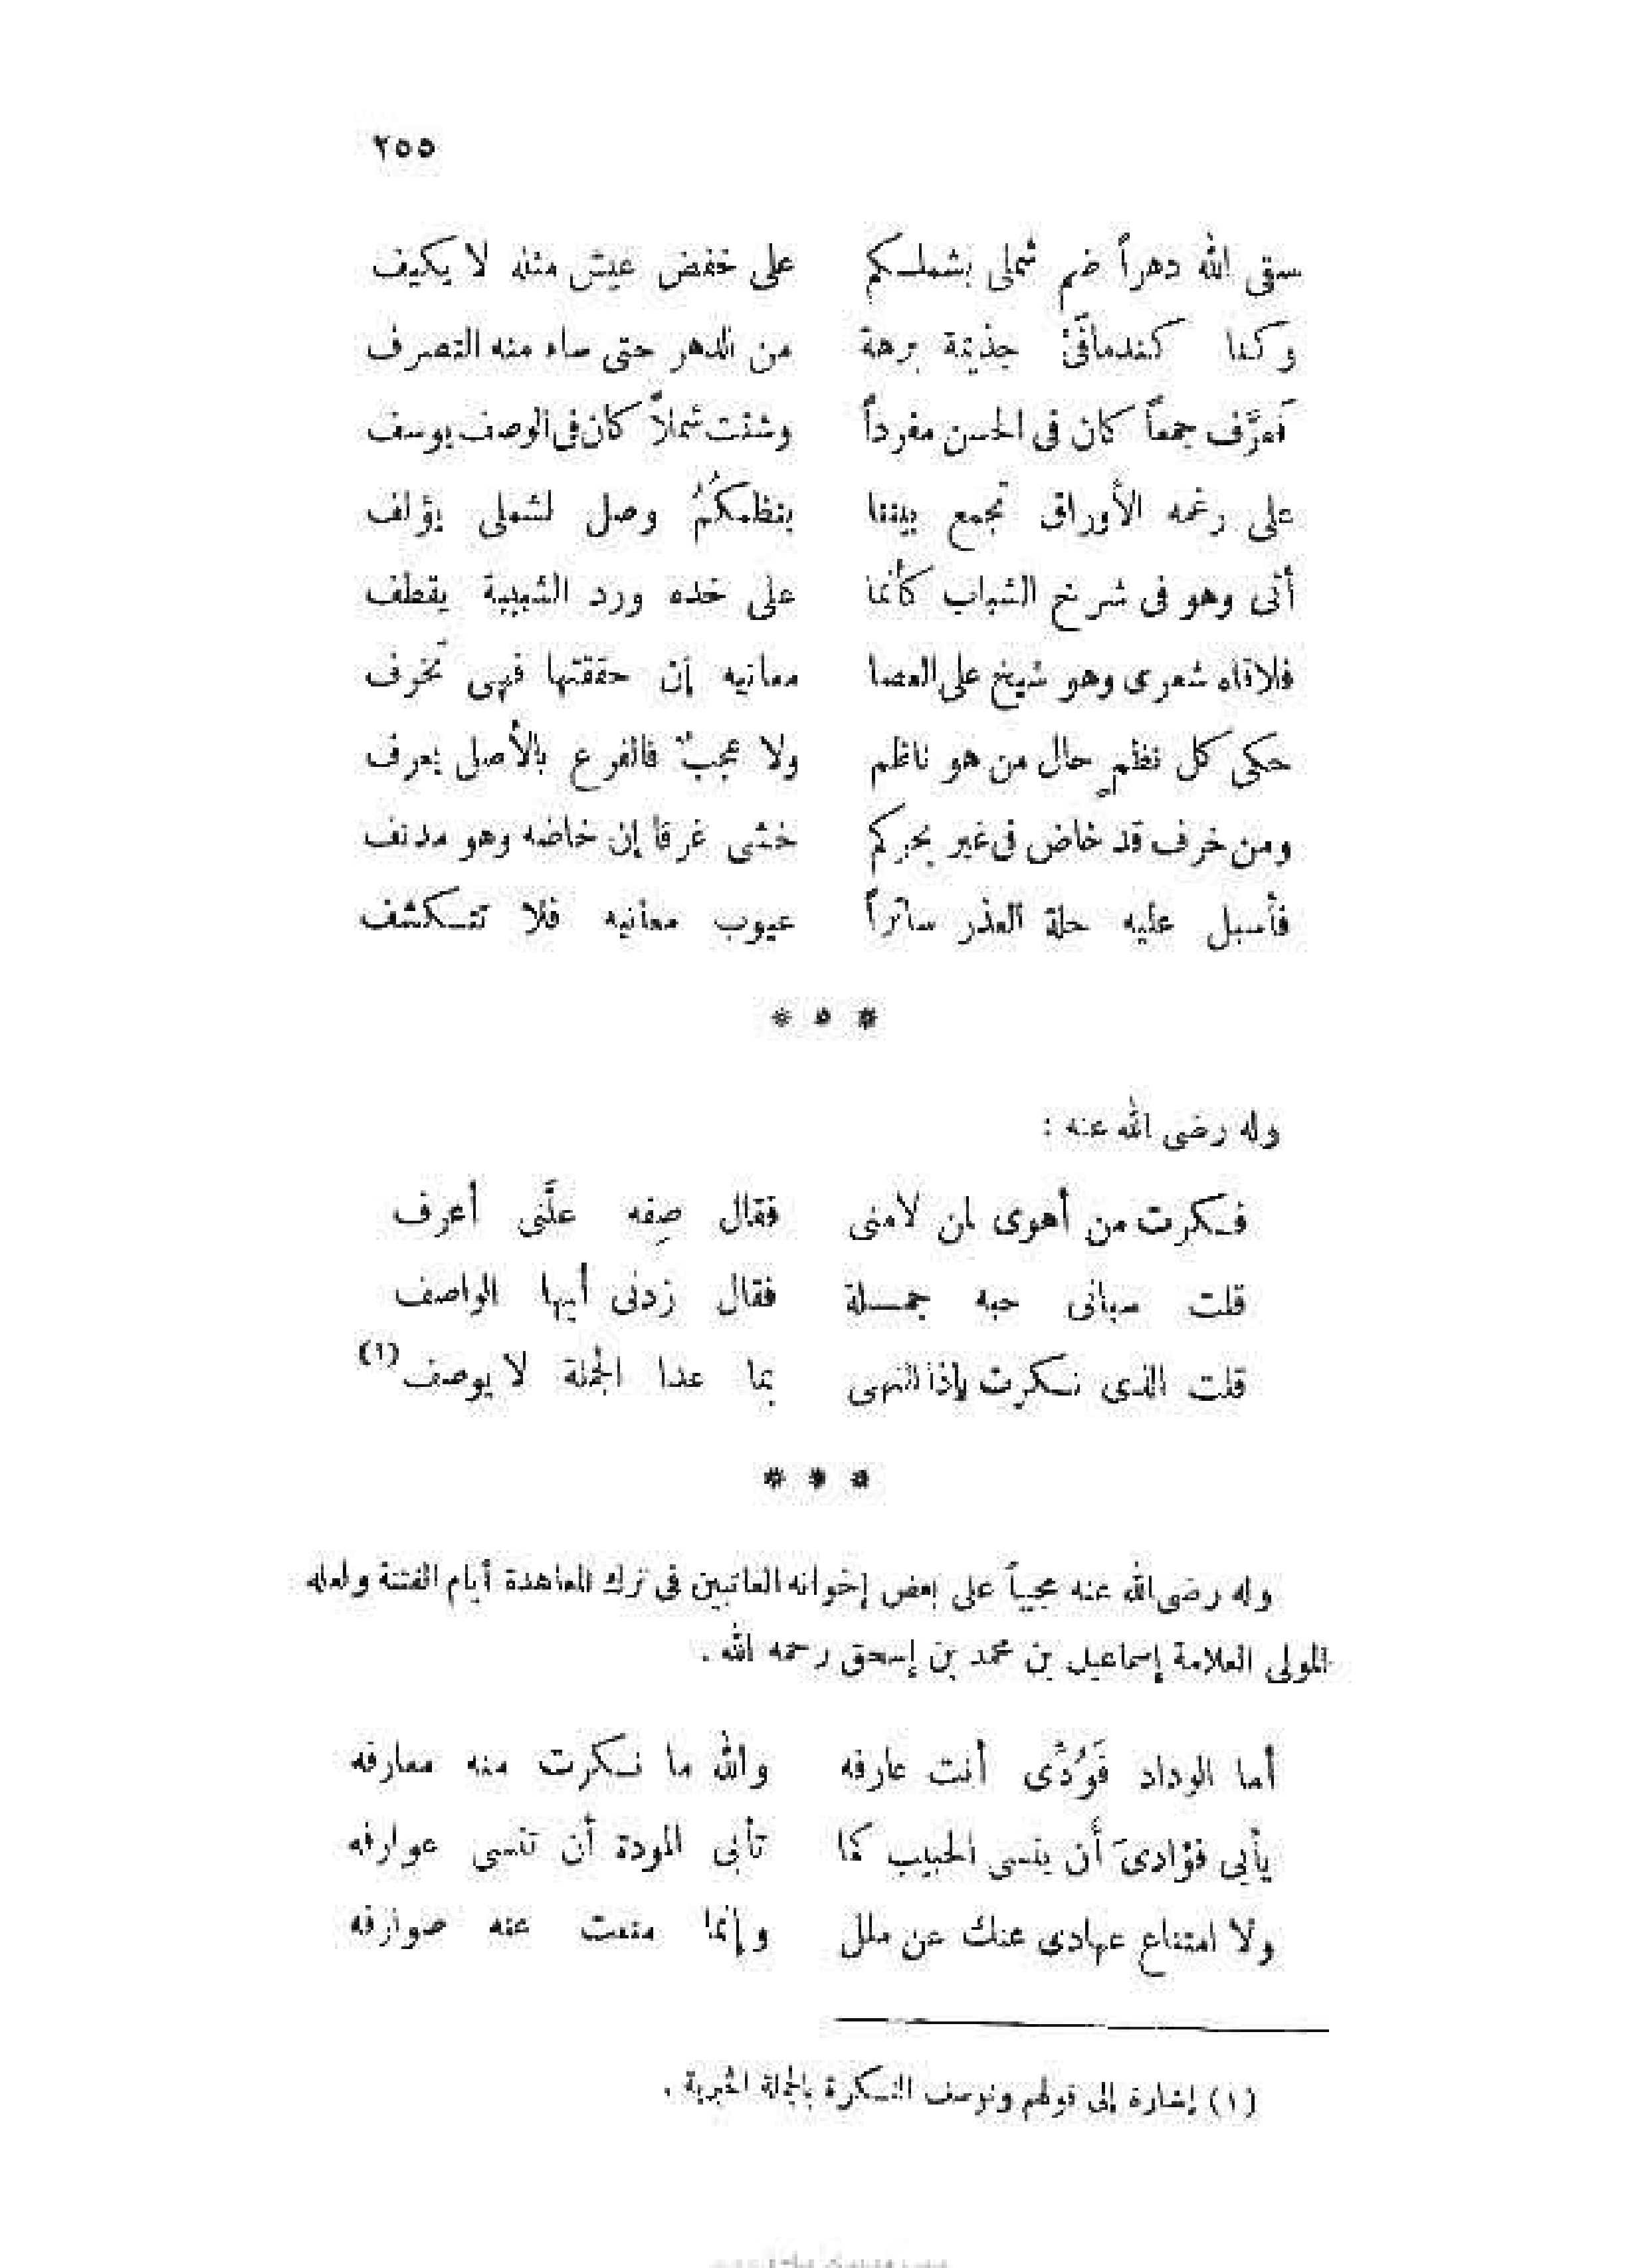 ٢٥٥
سقى الله دهراً ضم شملى بشملكم على خفض عيش مثله لا يكيف
وكنا كندمانَىْ جذيمة برهة من الدهر حتى ساء منه التصرف
فَمزَّق جمعاً كان فى الحسن مفرداً وشتت شملاً كان فى الوصف يوسف
على رغمه الأوراق تَجمع بيننا بنظمكُمُ وصل لشملى يؤلف
أتى وهو فى شرخ الشباب كأنما على خده ورد الشبيبة يقطف
فلاقاه شعرى وهو شيخ على العصا معانيه إن حققتها فهى تَخرف
حكى كل نظمٍ حال من هو ناظم ولا عجبٌ فالفرع بالأصل يعرف
ومن خرف قد خاض فى غير بحركم خشى غرقا إن خاضه وهو مدنف
فأسبل عليه حلة العذر ساتراً عيوب معانيه فلا تتكشف
* * *
وله رضى الله عنه :
فكرت من أهوى لمن لامنى فقال صِفه علَّنى أعرف
قلت سبانى حبه جملة فقال زدنى أيها الواصف
قلت الذى نكرت ياذا النهى بما عدا الجملة لا يوصف (١)
* * *
وله رضى الله عنه مجيباً على بعض إخوانه العاتبين فى ترك المعاهدة أيام الفتنة ولعله
المولى العلامة إسماعيل بن محمد بن إسحق رحمه الله .
أما الوداد فَوُدِّى أنت عارفه والله ما نكرت منه معارفه
يأبى فؤادىَ أن ينسى الحبيب كما تأبى المودة أن تنسى عوارفه
ولا امتناع عهادى عنك عن ملل وإنما منعت عنه صوارفه
(١) إشارة إلى قولهم وتوصف النكرة بالجملة الخبرية .